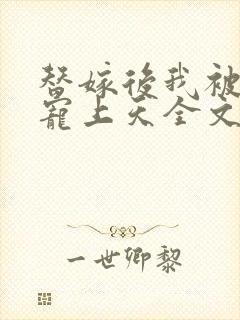 替嫁後我被
寵上天全文
一世卿黎